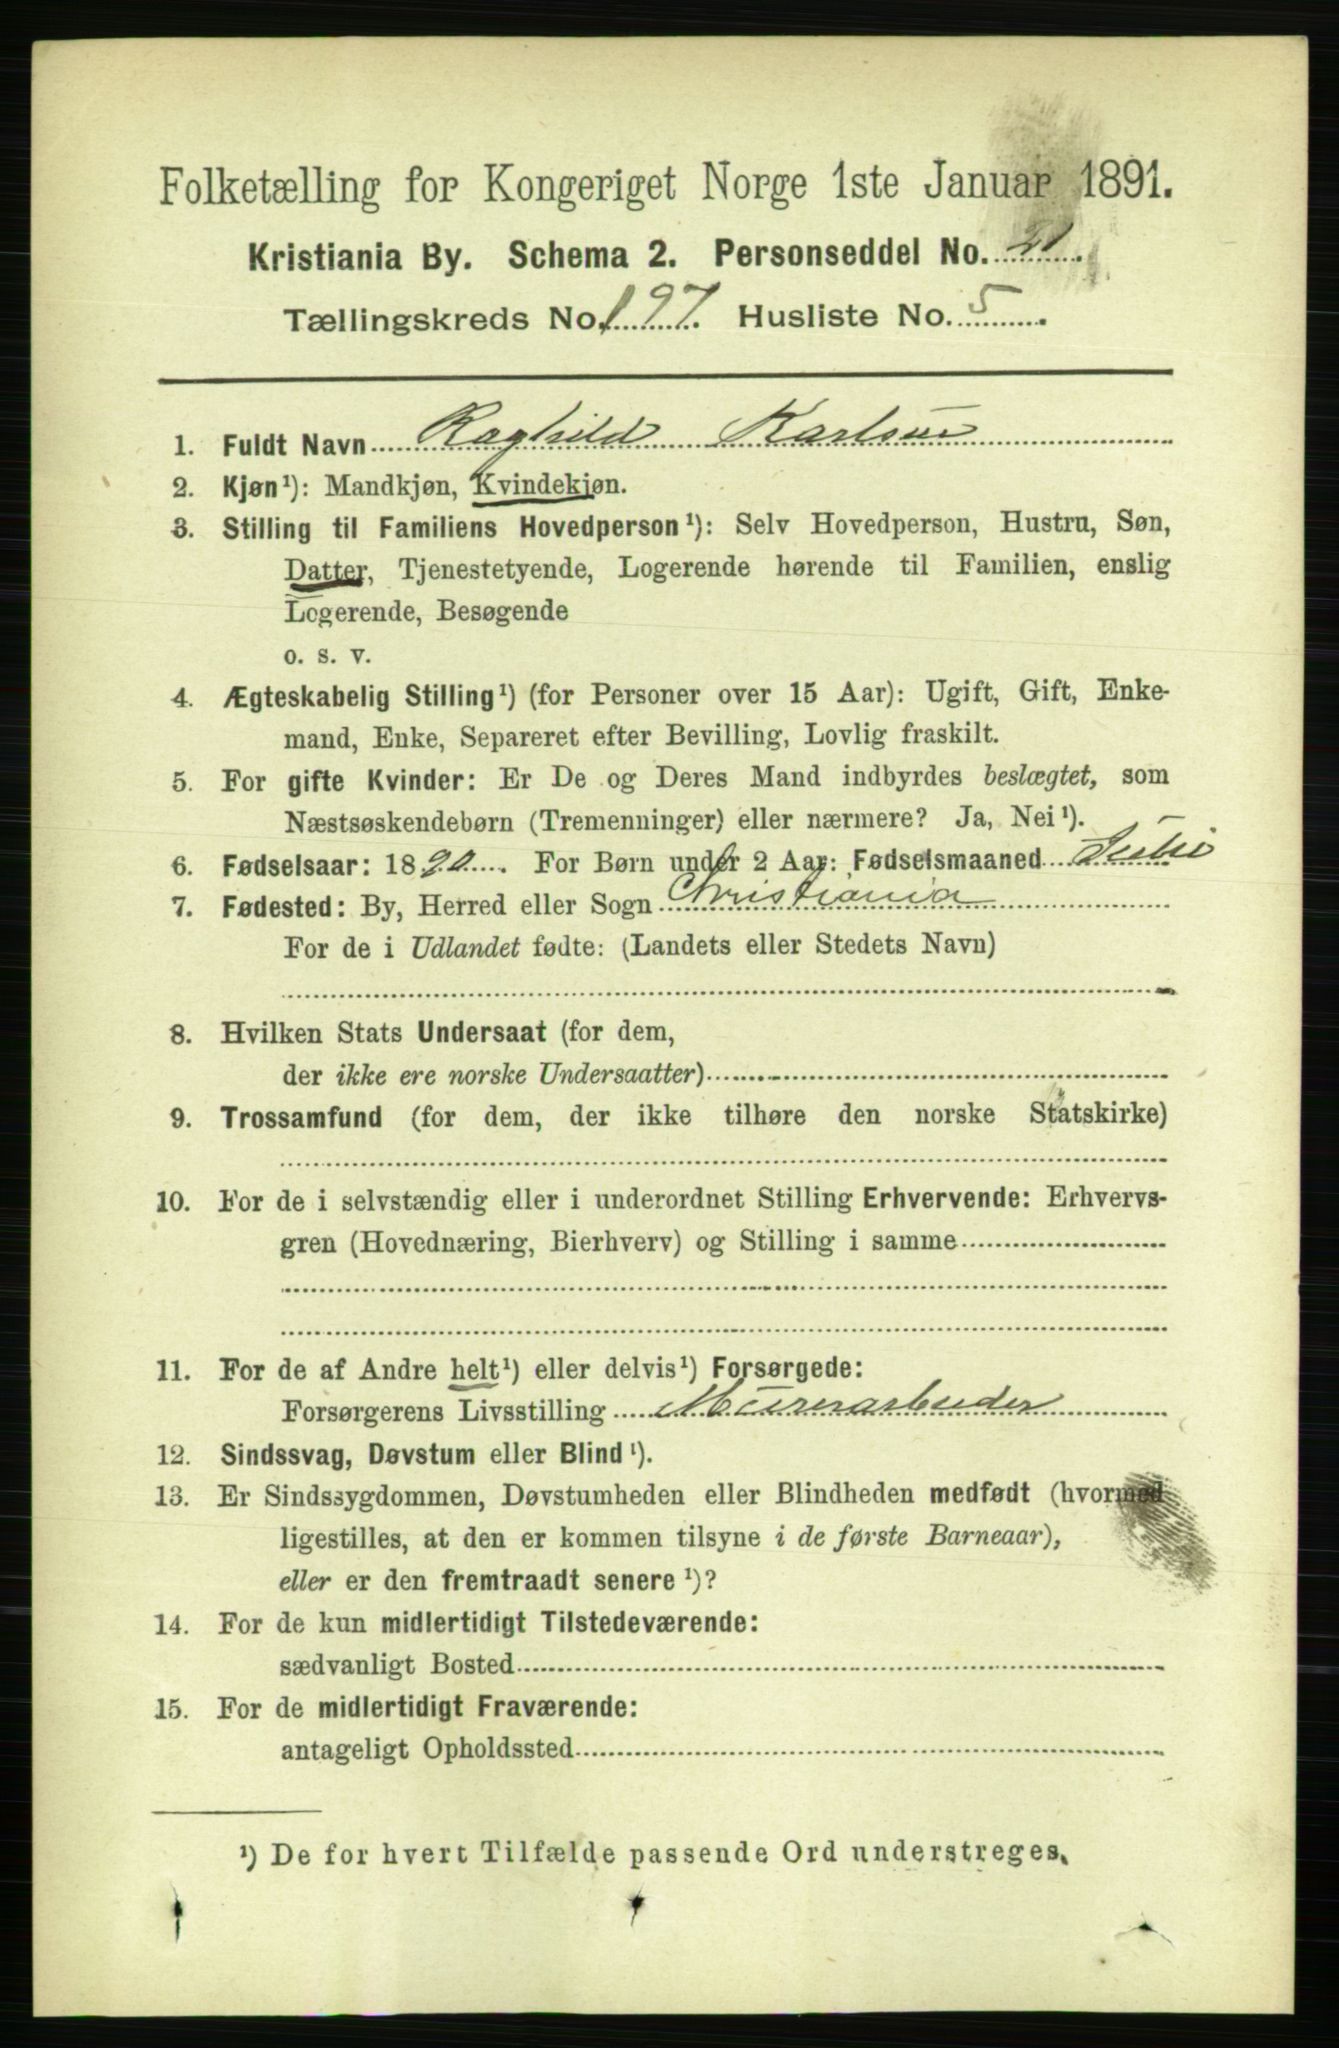 Folketælling for Kongeriget Norge 1ste Januar 1891.
Kristiania By. Schema 2. Personseddel No. 21.
Tællingskreds No. 197. Husliste No. 5.
1. Fuldt Navn Raghild Karlsen
2. Kjøn¹): Mandkjøn, Kvindekjøn.
3. Stilling til Familiens Hovedperson¹): Selv Hovedperson, Hustru, Søn,
Datter, Tjenestetyende, Logerende hørende til Familien, enslig
Logerende, Besøgende
o. s. v.
4. Ægteskabelig Stilling¹) (for Personer over 15 Aar): Ugift, Gift, Enke-
mand, Enke, Separeret efter Bevilling, Lovlig fraskilt.
5. For gifte Kvinder: Er De og Deres Mand indbyrdes beslægtet, som
Næstsøskendebørn (Tremenninger) eller nærmere? Ja, Nei¹).
6. Fødselsaar: 1890. For Børn under 2 Aar: Fødselsmaaned Julie
7. Fødested: By, Herred eller Sogn Christiania
For de i Udlandet fødte: (Landets eller Stedets Navn)
8. Hvilken Stats Undersaat (for dem,
der ikke ere norske Undersaatter)
9. Trossamfund (for dem, der ikke tilhøre den norske Statskirke)
10. For de i selvstændig eller i underordnet Stilling Erhvervende: Erhvervs-
gren (Hovednæring, Bierhverv) og Stilling i samme
11. For de af Andre helt¹) eller delvis¹) Forsørgede:
Forsørgerens Livsstilling Murerarbeider
12. Sindssvag, Døvstum eller Blind¹).
13. Er Sindssygdommen, Døvstumheden eller Blindheden medfødt (hvormed
ligestilles, at den er kommen tilsyne i de første Barneaar),
eller er den fremtraadt senere¹)?
14. For de kun midlertidigt Tilstedeværende:
sædvanligt Bosted
15. For de midlertidigt Fraværende:
antageligt Opholdssted
¹) De for hvert Tilfælde passende Ord understreges.